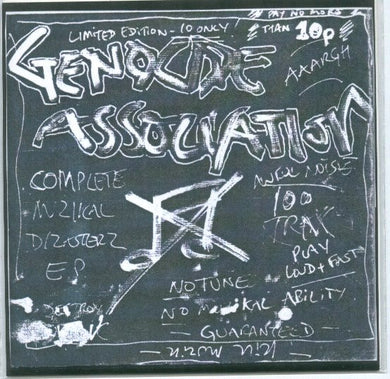 PAY NO MORE
LIMITED EDITION - 10 ONLY!
THAN 10p
GENOCIDE
AAARGH
ASSOCIATION
COMPLETE
MUZIKAL
DIZASTERZ
E.P
NOIZE
100
TRAX
PLAY
LOUD + FAST
NO TUNE
NO MUZIKAL ABILITY
GUARANTEED
DESTROY